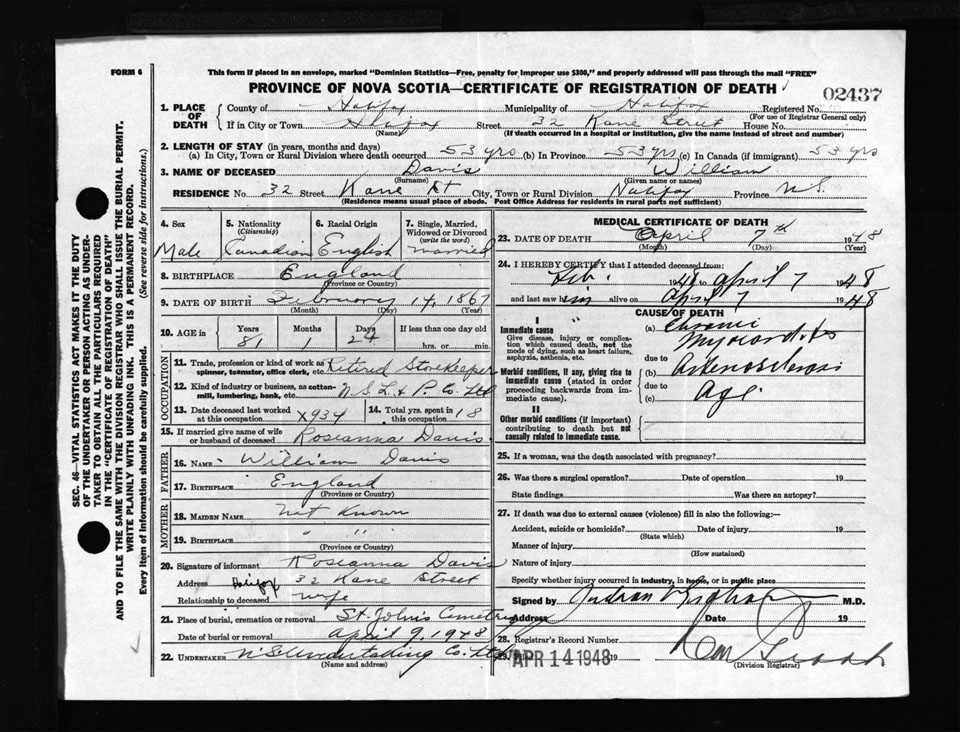 FORM 6
This form if placed in an envelope, marked "Dominion Statistics—Free, penalty for improper use $300," and properly addressed will pass through the mail "FREE"
PROVINCE OF NOVA SCOTIA—CERTIFICATE OF REGISTRATION OF DEATH
02437
1. PLACE OF DEATH
County of Halifax Municipality of Halifax Registered No.
(For use of Registrar General only)
If in City or Town Halifax Street 32 Kane Street House No.
(If death occurred in a hospital or institution, give the name instead of street and number)
2. LENGTH OF STAY (in years, months and days)
(a) In City, Town or Rural Division where death occurred 53 yrs (b) In Province 53 yrs (c) In Canada (if immigrant) 53 yrs
3. NAME OF DECEASED Davis William
(Surname) (Given name or names)
RESIDENCE No. 32 Street Kane St City, Town or Rural Division Halifax Province N.S.
(Residence means usual place of abode. Post Office Address for residents in rural parts not sufficient)
4. Sex
Male
5. Nationality
(Citizenship)
Canadian
6. Racial Origin
English
7. Single, Married, Widowed or Divorced
(write the word)
Married
8. BIRTHPLACE England
(Province or Country)
9. DATE OF BIRTH February 14, 1867
(Month) (Day) (Year)
10. AGE in
Years Months Days If less than one day old
81 1 24 hrs. or min.
OCCUPATION
11. Trade, profession or kind of work as Retired Storekeeper
spinner, teamster, office clerk, etc.
12. Kind of industry or business, as cotton- N.S.L. & P. Co. Ltd
mill, lumbering, bank, etc.
13. Date deceased last worked
at this occupation X934
14. Total yrs. spent in
this occupation 18
15. If married give name of wife
or husband of deceased Roseanna Davis
FATHER
16. NAME William Davis
17. BIRTHPLACE England
(Province or Country)
MOTHER
18. MAIDEN NAME Not Known
19. BIRTHPLACE " "
(Province or Country)
20. Signature of informant Roseanna Davis
Address Halifax 32 Kane Street
Relationship to deceased wife
21. Place of burial, cremation or removal St. John's Cemetry
Date of burial or removal April 9, 1948
22. UNDERTAKER N S Undertaking Co. Ltd
(Name and address)
MEDICAL CERTIFICATE OF DEATH
23. DATE OF DEATH April 7th 1948
(Month) (Day) (Year)
24. I HEREBY CERTIFY that I attended deceased from:
Feb. 1948 to April 7 1948
and last saw him alive on April 7 1948
CAUSE OF DEATH
I
Immediate cause
Give disease, injury or complication which caused death, not the mode of dying, such as heart failure, asphyxia, asthenia, etc.
(a) Chronic
Myocarditis
due to
Morbid conditions, if any, giving rise to immediate cause (stated in order proceeding backwards from immediate cause).
(b) Arteriosclerosis
due to
(c) Age.
II
Other morbid conditions (if important) contributing to death but not causally related to immediate cause.
25. If a woman, was the death associated with pregnancy?
26. Was there a surgical operation? Date of operation 19
State findings Was there an autopsy?
27. If death was due to external causes (violence) fill in also the following:—
Accident, suicide or homicide? Date of injury 19
(State which)
Manner of injury
(How sustained)
Nature of injury
Specify whether injury occurred in industry, in home, or in public place
Signed by M.D.
Address Date 19
28. Registrar's Record Number
APR 14 1948 19
(Division Registrar)
SEC. 46—VITAL STATISTICS ACT MAKES IT THE DUTY
OF THE UNDERTAKER OR PERSON ACTING AS UNDER-
TAKER TO OBTAIN ALL THE PARTICULARS REQUIRED
IN THE "CERTIFICATE OF REGISTRATION OF DEATH"
AND TO FILE THE SAME WITH THE DIVISION REGISTRAR WHO SHALL ISSUE THE BURIAL PERMIT.
WRITE PLAINLY WITH UNFADING INK. THIS IS A PERMANENT RECORD.
Every item of information should be carefully supplied. (See reverse side for instructions.)